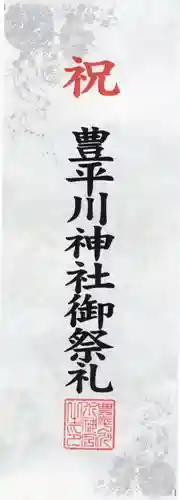 祝
豊平川神社御祭礼